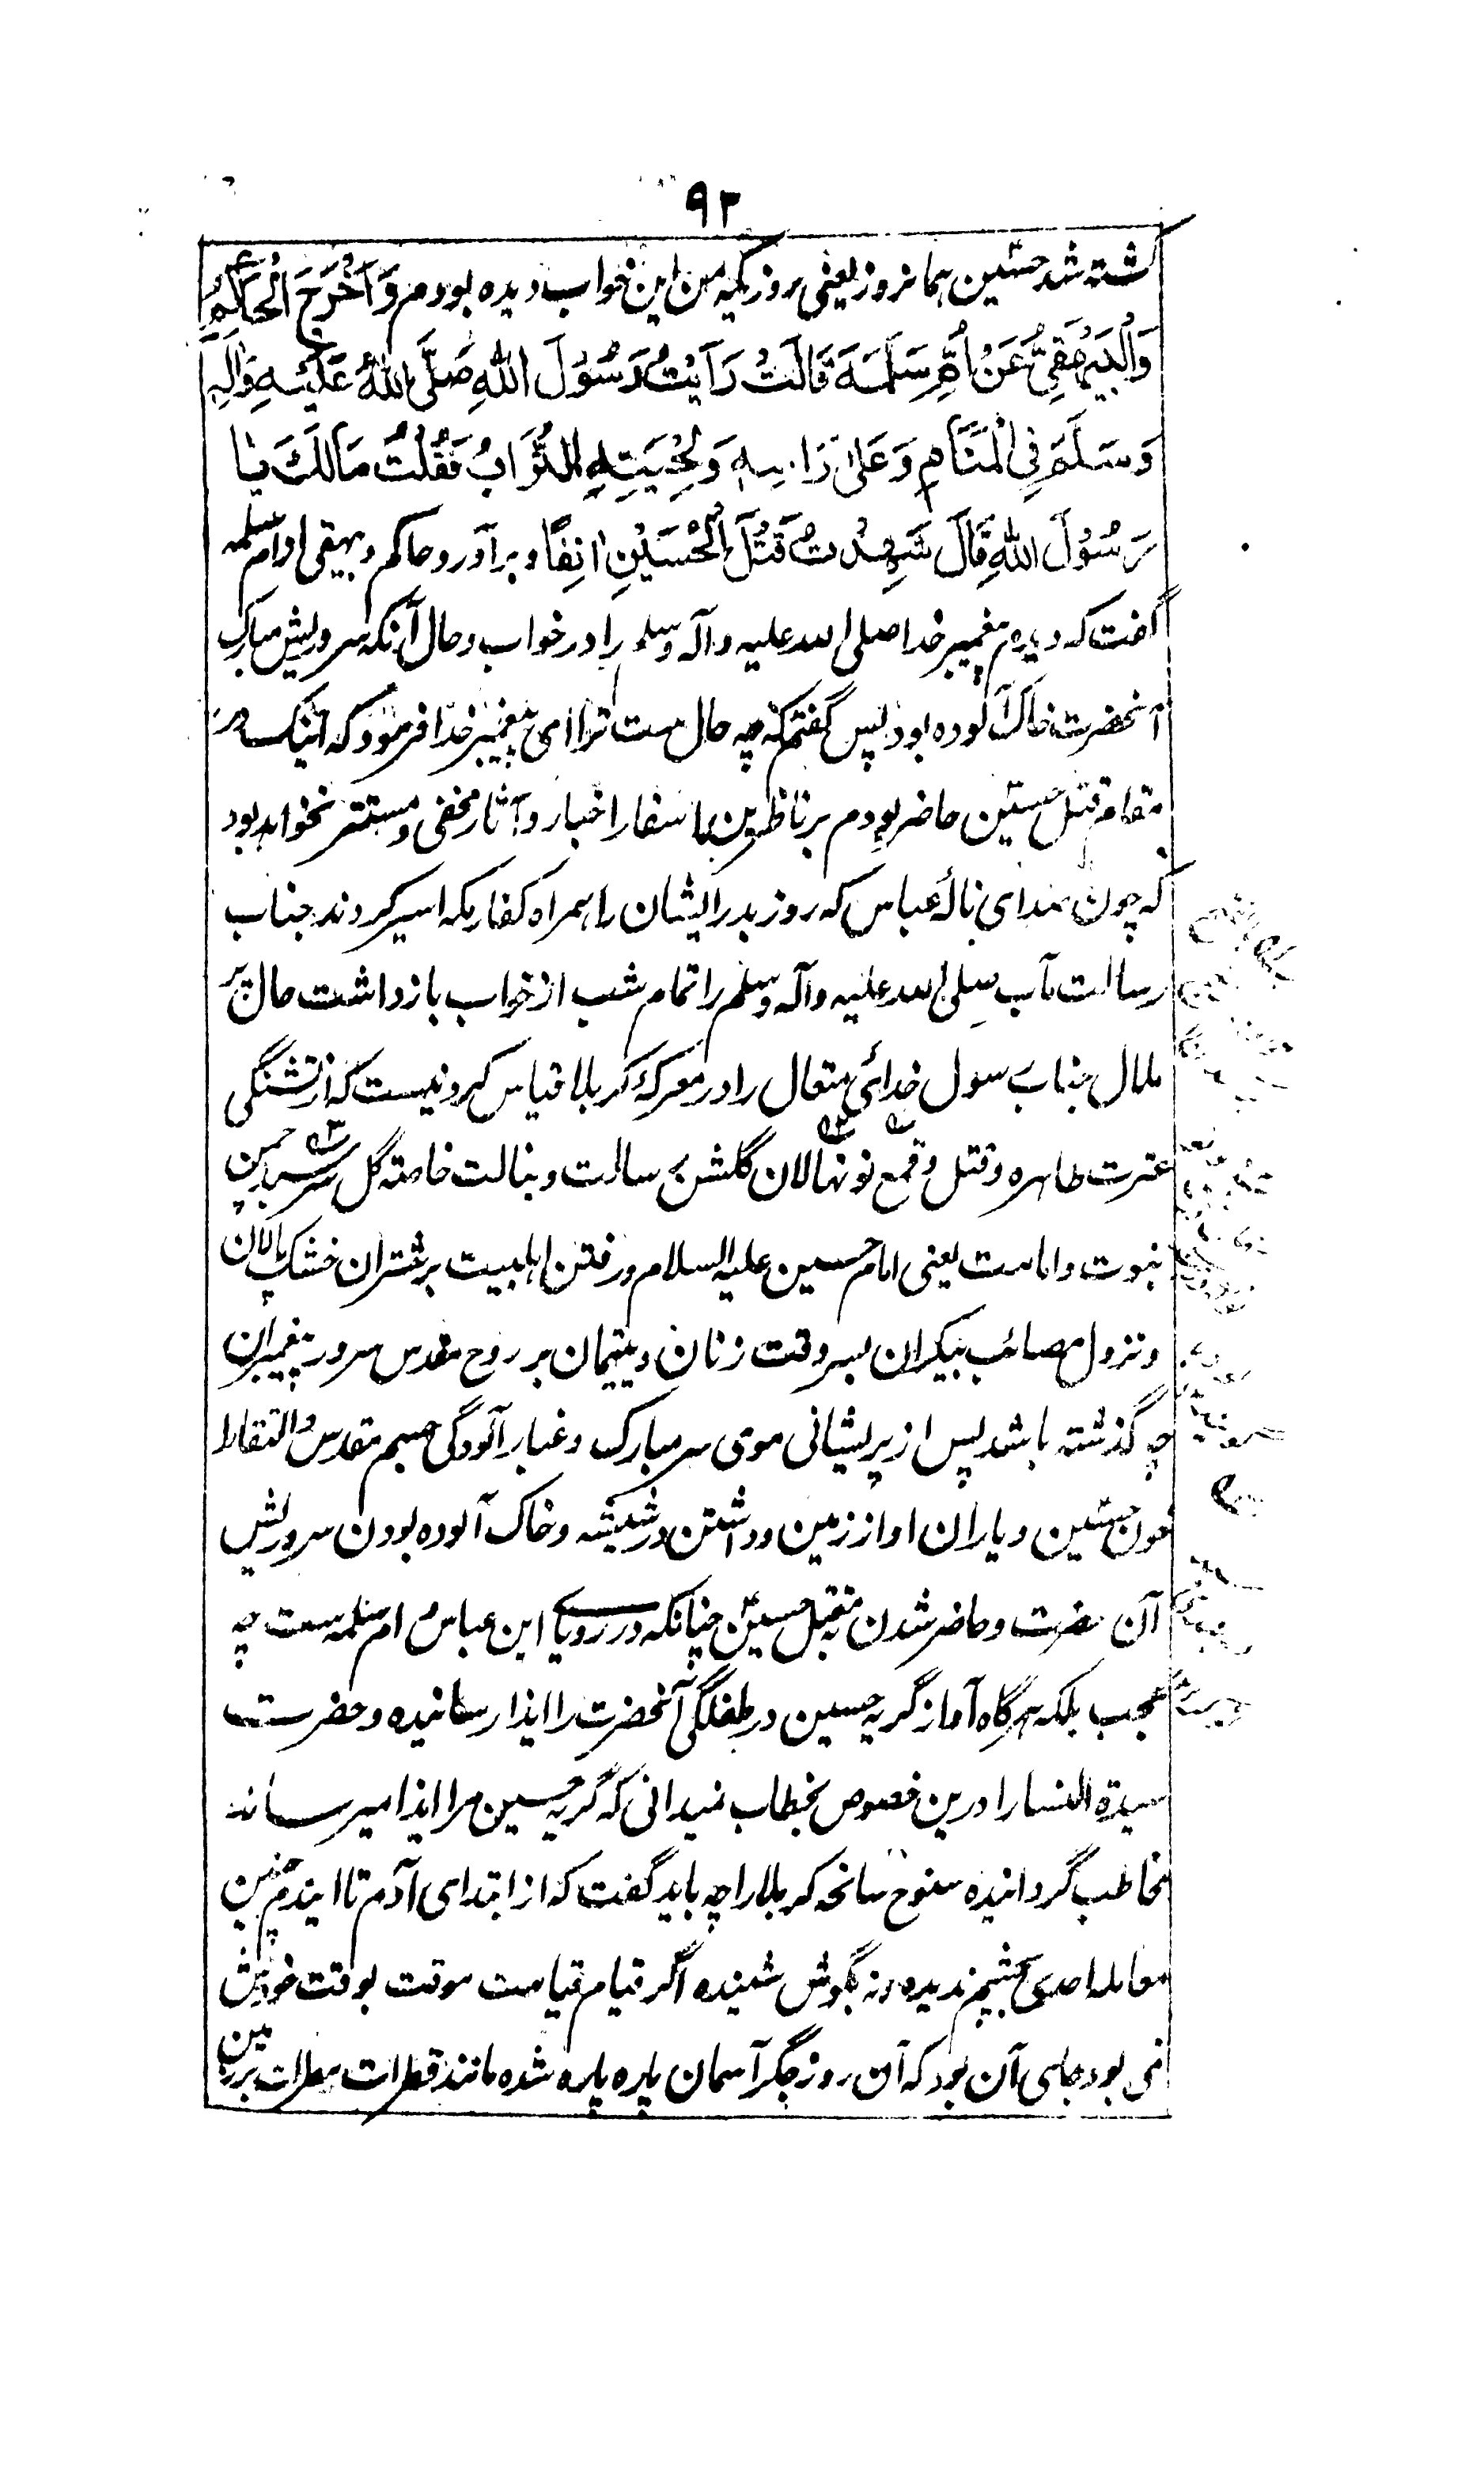 ۹۳
کشته شد حسین همانروز یعنی روزیکه من این خواب دیده بودم وَاَخْرَجَ الْحَاکِمُ
وَالْبَیْهَقِیُّ عَنْ اُمِّ سَلَمَةَ قَالَتْ رَاَیْتُ رَسُوْلَ اللّٰهِ صَلَّی اللّٰهُ عَلَیْهِ وَاٰلِهٖ
وَسَلَّمَ فِی الْمَنَامِ وَعَلٰی رَاْسِهٖ وَلِحْیَتِهِ التُّرَابُ فَقُلْتُ مَالَکَ یَا
رَسُوْلَ اللّٰهِ قَالَ شَهِدْتُ قَتْلَ الْحُسَیْنِ اٰنِفًا و برآورد حاکم و بیهقی از ام سلمه
گفت که دیدم پیغمبر خدا صلی الله علیه وآله وسلم را در خواب و حال آنکه سر و ریش مبارک
آنحضرت خاک آلوده بود پس گفتم که چه حال ست ترا ای پیغمبر خدا فرمود که اینک در
مقام قتل حسین حاضر بودم بر ناظرین اسفار اخبار و آثار مخفی و مستتر نخواهد بود
که چون صدای نالهٔ عباس که روز بدر ایشان را همراه کفار مکه اسیر کردند جناب
رسالت مآب صلی الله علیه وآله وسلم را تمام شب از خواب بازداشت حال پر
ملال جناب رسول خدای متعال را در معرکهٔ کربلا قیاس کردنیست که از تشنگی
عترت طاهره و قتل و قمع نونهالان گلشن رسالت و بنالت خاصة گل سرسبد چمن
نبوت و امامت یعنی امام حسین علیه السلام و رفتن اهلبیت بر شتران خشک پالان
و نزول مصائب بیکران بسر وقت زنان و یتیمان بر روح مقدس سرور پیغمبران
چه گذشته باشد پس از پریشانی موی سر مبارک و غبار آلودگی جسم مقدس و التقاط
خون حسین و یاران او از زمین و داشتن در شیشه و خاک آلوده بودن سر و ریش
آن حضرت و حاضر شدن بمقتل حسین چنانکه در رویای ابن عباس و ام سلمه ست چه
عجب بلکه هرگاه آواز گریه حسین در طفلگی آنحضرت را ایذا رسانیده و حضرت
سیدة النسا را درین خصوص بخطاب نمیدانی که گریه حسین مرا ایذا میرساند
مخاطب گردانیده سنوح سانحه کربلا را چه باید گفت که از ابتدای آدم تا ایندم چنین
معامله احدی بچشم ندیده و نه بگوش شنیده اگر قیام قیامت موقت بوقت خویش
نمی بود جای آن بود که آن روز جگر آسمان پاره پاره شده مانند قطرات مطرات بر زمین